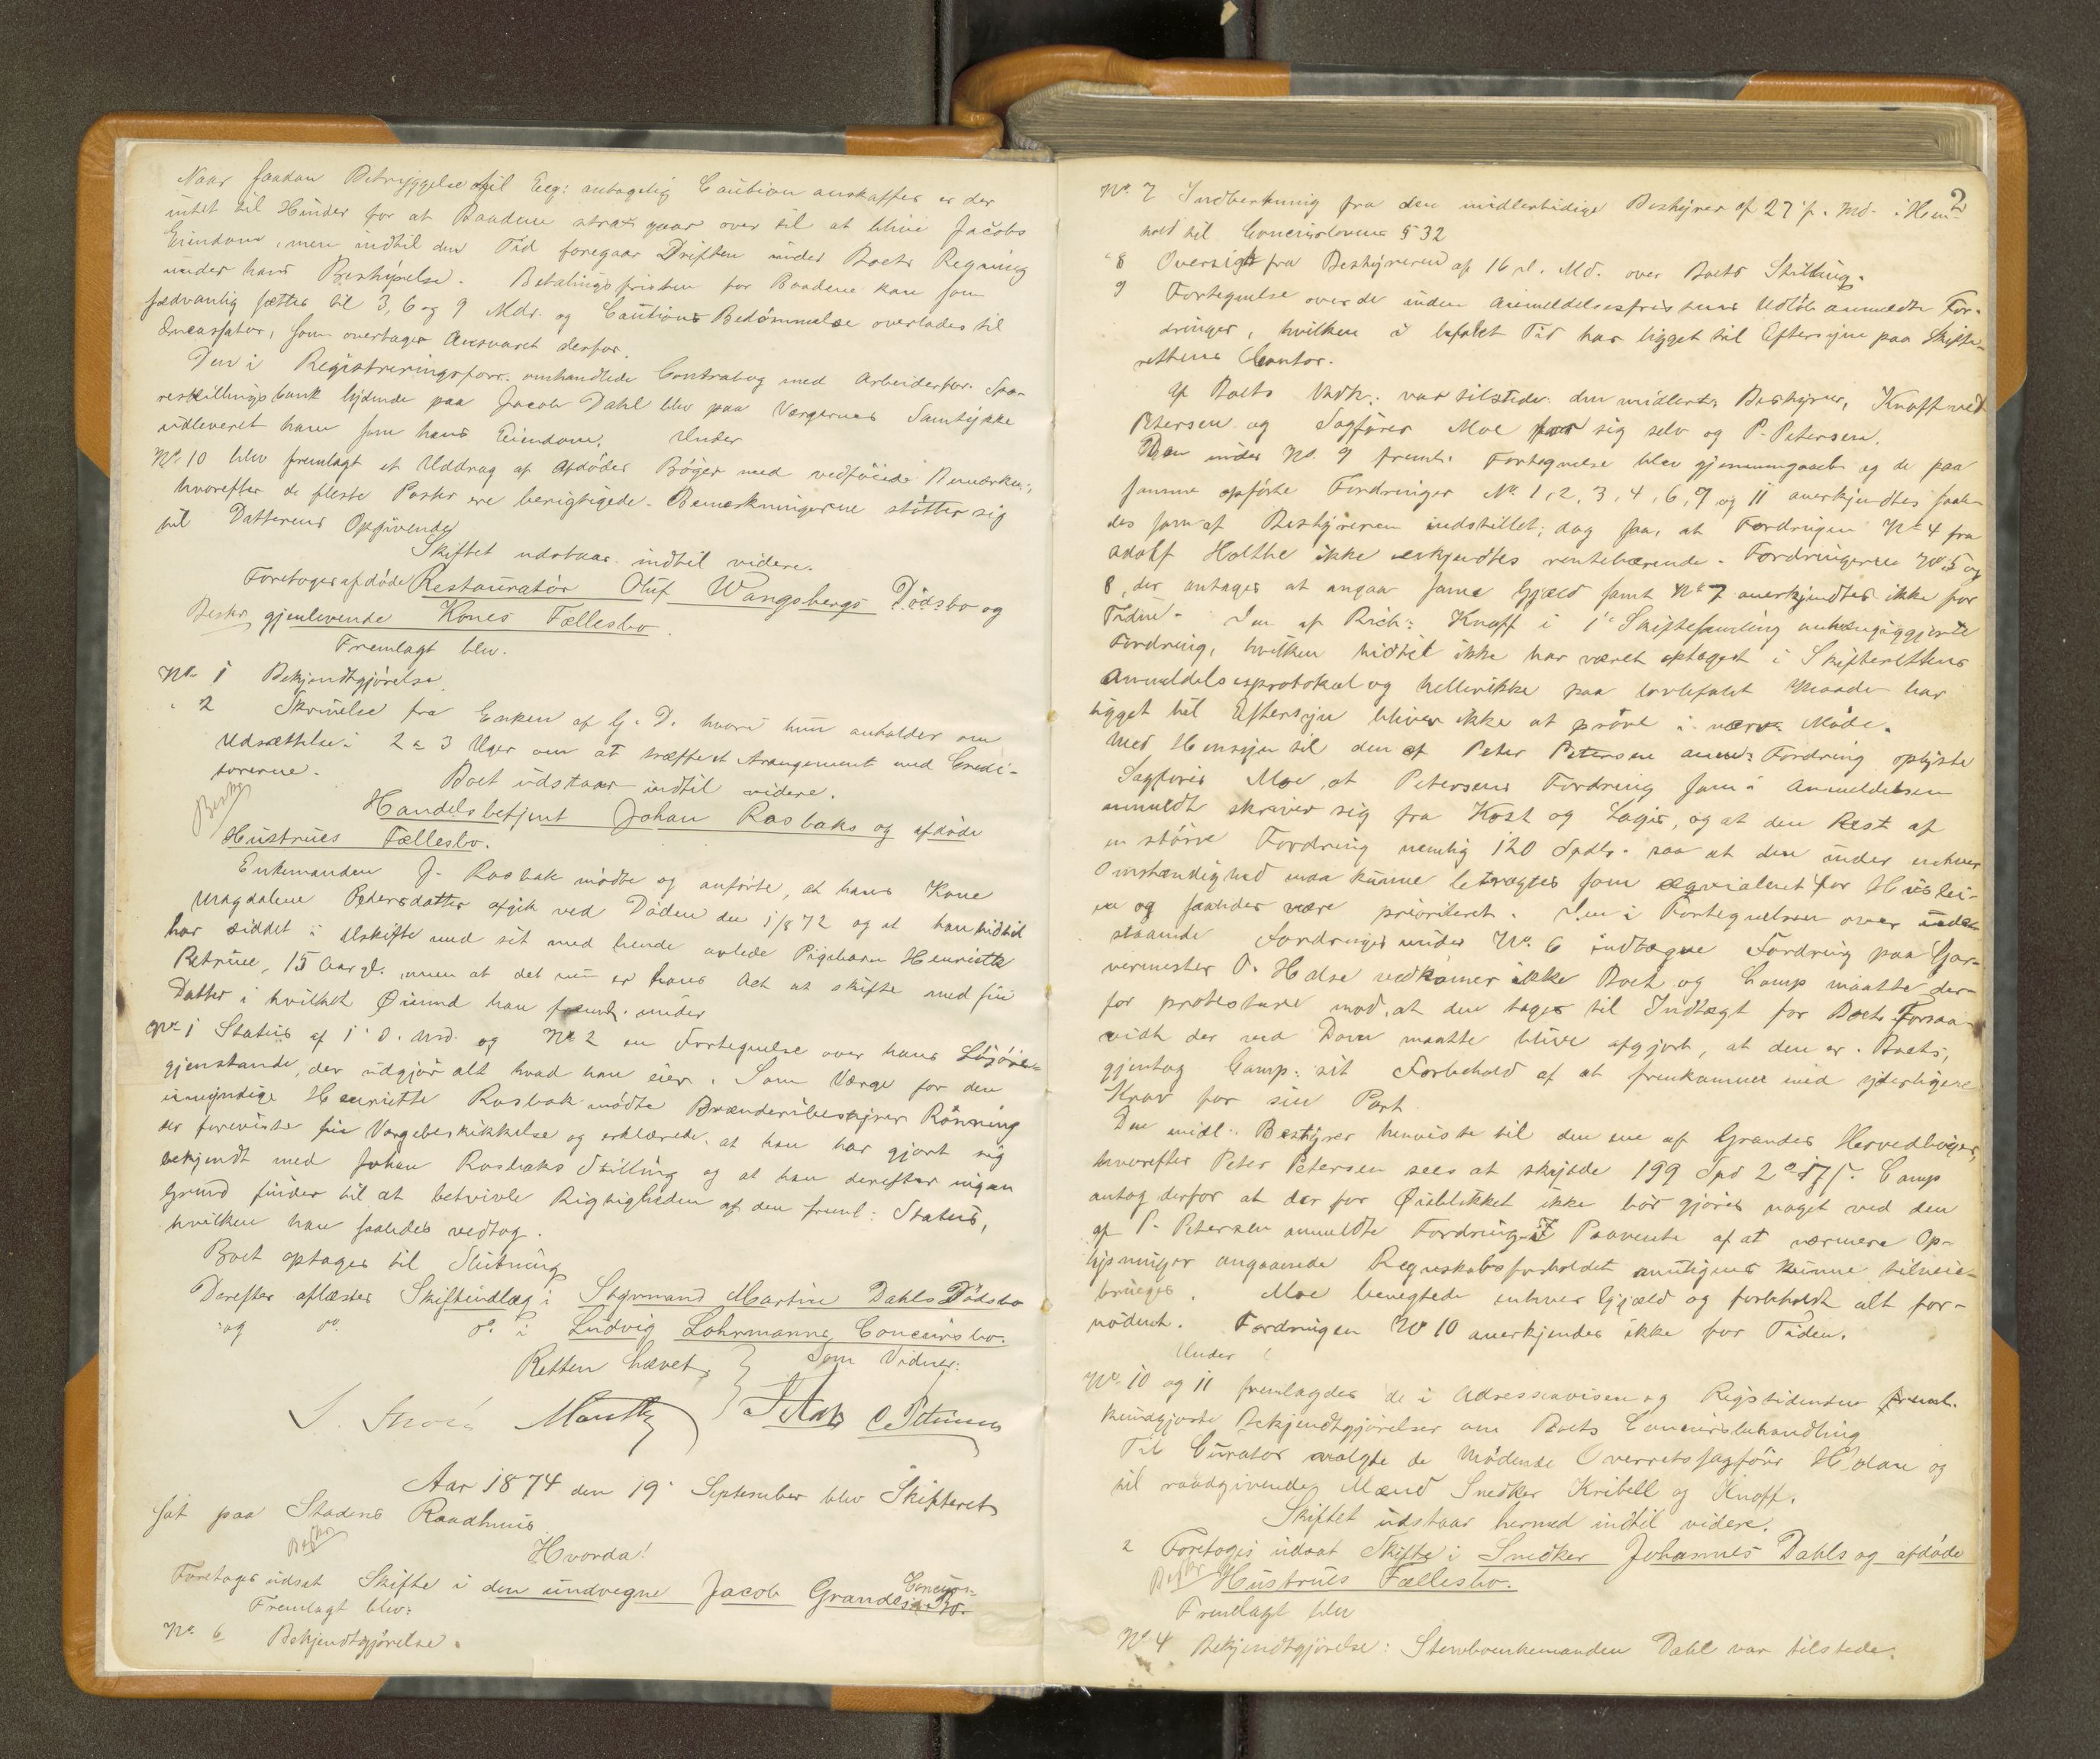 Naar saadan Betryggelse til Eeg: antagelig Caution anskaffes er der
intet til Hinder for at Baadene strax gaar over til at blive Jacobs
Eiendom, men indtil den Tid foregaar Driften under Boets Regning
under hans Bestyrelse. Betalingsfristen for Baadene kan som
sædvanlig sættes til 3, 6 og 9 Mdr. og Cautions Bedømmelse overlades til
Incassator, som overtager Ansvaret derfor.
Den i Registreringsforr. omhandlede Contrabog med Arbeiderfor. Spa-
reskillingsbank lydende paa Jacob Dahl blev paa Værgernes Samtykke
udleveret ham som hans Eiendom. Under
No. 10 blev fremlagt et Uddrag af Afdødes Bøger med vedføiede Bemærkn:,
hvorefter de fleste Poster ere berigtigede. Bemærkningerne støtter sig
til Datterens Opgivende
Skiftet udstaar indtil videre.
Foretoges afdøde Restauratør Oluf Wangsbergs Dødsbo og
Beskr. gjenlevende Kones Fællesbo.
Fremlagt blev.
No. 1 Bekjendtgjørelse
" 2 Skrivelse fra Enken af G. D. hvori hun anholder om
Udsættelse i 2 a 3 Uger om at træffe et Arangement med Credi-
torerne. Boet udstaar indtil videre.
Beskr
Handelsbetjent Johan Rosbaks og afdøde
Hustrues Fællesbo.
Enkemanden J. Rosbak mødte og anførte, at hans Kone
Magdalene Pedersdatter afgik ved Døden den 1/8 72 og at han hidtil
har siddet i Uskifte med sit med hende avlede Pigebarn Henriette
Petrine, 15 Aar gl. men at det nu er hans Agt at skifte med sin
Datter i hvilket Øiemed han freml. under
No 1 Status af 1' d. Md. og No 2 en Fortegnelse over hans Løsøre-
gjenstande, der udgjør alt hvad han eier. Som Værge for den
umyndige Henriette Rosbak mødte Brænderibestyrer Rønning
der foreviste sin Værgebeskikkelse og erklærede, at han har gjort sig
bekjendt med Johan Rosbaks Stilling og at han derefter ingen
Grund finder til at betvivle Rigtigheden af den freml: Status,
hvilken han saaledes vedtog.
Boet optages til Slutning
Derefter aflæstes Skifteudlæg i Styrmand Martin Dahls Dødsbo
og do. do. i Ludvig Lohrmanns Concursbo.
Retten hævet. Som Vidner:
Aar 1874 den 19' September blev Skifteret
sat paa Stadens Raadhuus
Beskr
Hvorda!
Foretoges udsat Skifte i den undvegne Jacob Grandes Concurs-Bo.
Fremlagt blev:
No. 6 Bekjendtgjørelse.
2
No. 7 Indberetning fra den midlertidige Bestyrer af 27' f. Md. i Hen-
hold til Concursloven § 32
" 8 Oversigt fra Bestyreren af 16 d. Md. over Boets Stilling.
9 Fortegnelse over de inden Anmeldelsesfristens Udløb anmeldte For-
dringer, hvilken i befalet Tid har ligget til Eftersyn paa Skifte-
rettens Contor.
Af Boets Vedk: var tilstede: den midlert. Bestyrer, Knoff ved
Petersen og Sagfører Moe for sig selv og P. Petersen.
Den under No. 9 freml. Fortegnelse blev gjennemgaaet og de paa
samme opførte Fordringer No. 1, 2, 3, 4, 6, 9 og 11 anerkjendtes saale-
des som af Bestyreren indstillet; dog saa, at Fordringen No 4 fra
Adolf Holthe ikke erkjendtes rentebærende. Fordringerne No 5 og
8, der antages at angaa samme Gjæld samt No 7 anerkjendtes ikke for
Tiden. Den af Rich: Knoff i 1' Skiftesamling anhængiggjorte
Fordring, hvilken hidtil ikke har været optaget i Skifterettens
Anmeldelsesprotokol og hellerikke paa lovbefalet Maade har
ligget til Eftersyn bliver ikke at prøve i nærv. Møde.
Med Hensyn til den af Peter Petersen anm: Fordring oplyste
Sagfører Moe, at Petersens Fordring som i Anmeldelsen
anmeldt skriver sig fra Kost og Logis, og at den Rest af
en større Fordring nemlig 120 Spdlr. saa at den under enhver
Omstændighed maa kunne betragtes som æqvivalent for Huslei-
en og saaledes være prioriteret. Den i Fortegnelsen over inde
staaende Fordringer under No. 6 indtagne Fordring paa Gar-
vermester O. Halse vedkommer ikke Boet og Comp maatte der-
for protestere mod, at den tages til Indtægt for Boet. Forsaa-
vidt der ved Dom maatte blive afgjort, at den er Boets,
gjentog Comp: sit Forbehold af at fremkomme med yderligere
Krav for sin Part
Den midl. Bestyrer henviste til den ene af Grandes Hovedbøger,
hvorefter Peter Petersen sees at skylde 199 Spd Comp
antog derfor at der for Øieblikket ikke bør gjøres noget ved den
af P. Petersen anmeldte Fordring i Paavente af at nærmere Op-
lysninger angaaende Regnskabsforholdet muligens kunne tilveie-
bringes. Moe benegtede enhver Gjæld og forbeholdt alt for-
nødent. Fordringen No 10 anerkjendes ikke for Tiden.
Under
No. 10 og 11 fremlagdes de i Adresseavisen og Rigstidenden
kundgjorte Bekjendtgjørelser om Boets Concursbehandling
Til Curator valgte de Mødende Overretssagfører og
til raadgivende Mænd Snedker Kribell og Knoff.
Skiftet udstaar hermed indtil videre.
2 Foretoges udsat Skifte i Snedker Johannes Dahls og afdøde
Beskr Hustrues Fællesbo.
Fremlagt blev
No 4 Bekjendtgjørelse: Stervboenkemanden Dahl var tilstede.